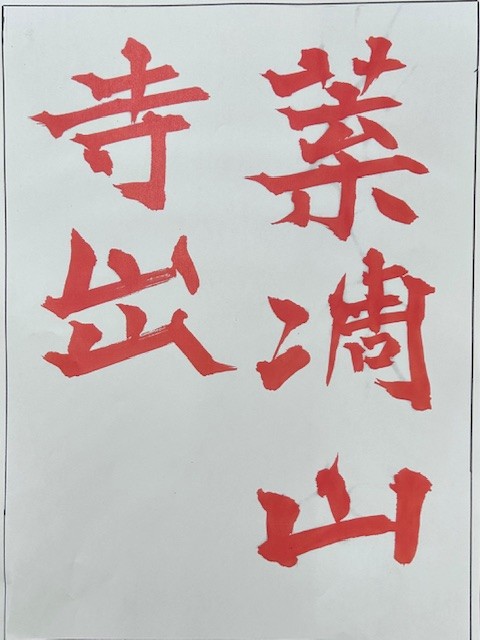 葉凋山
寺出